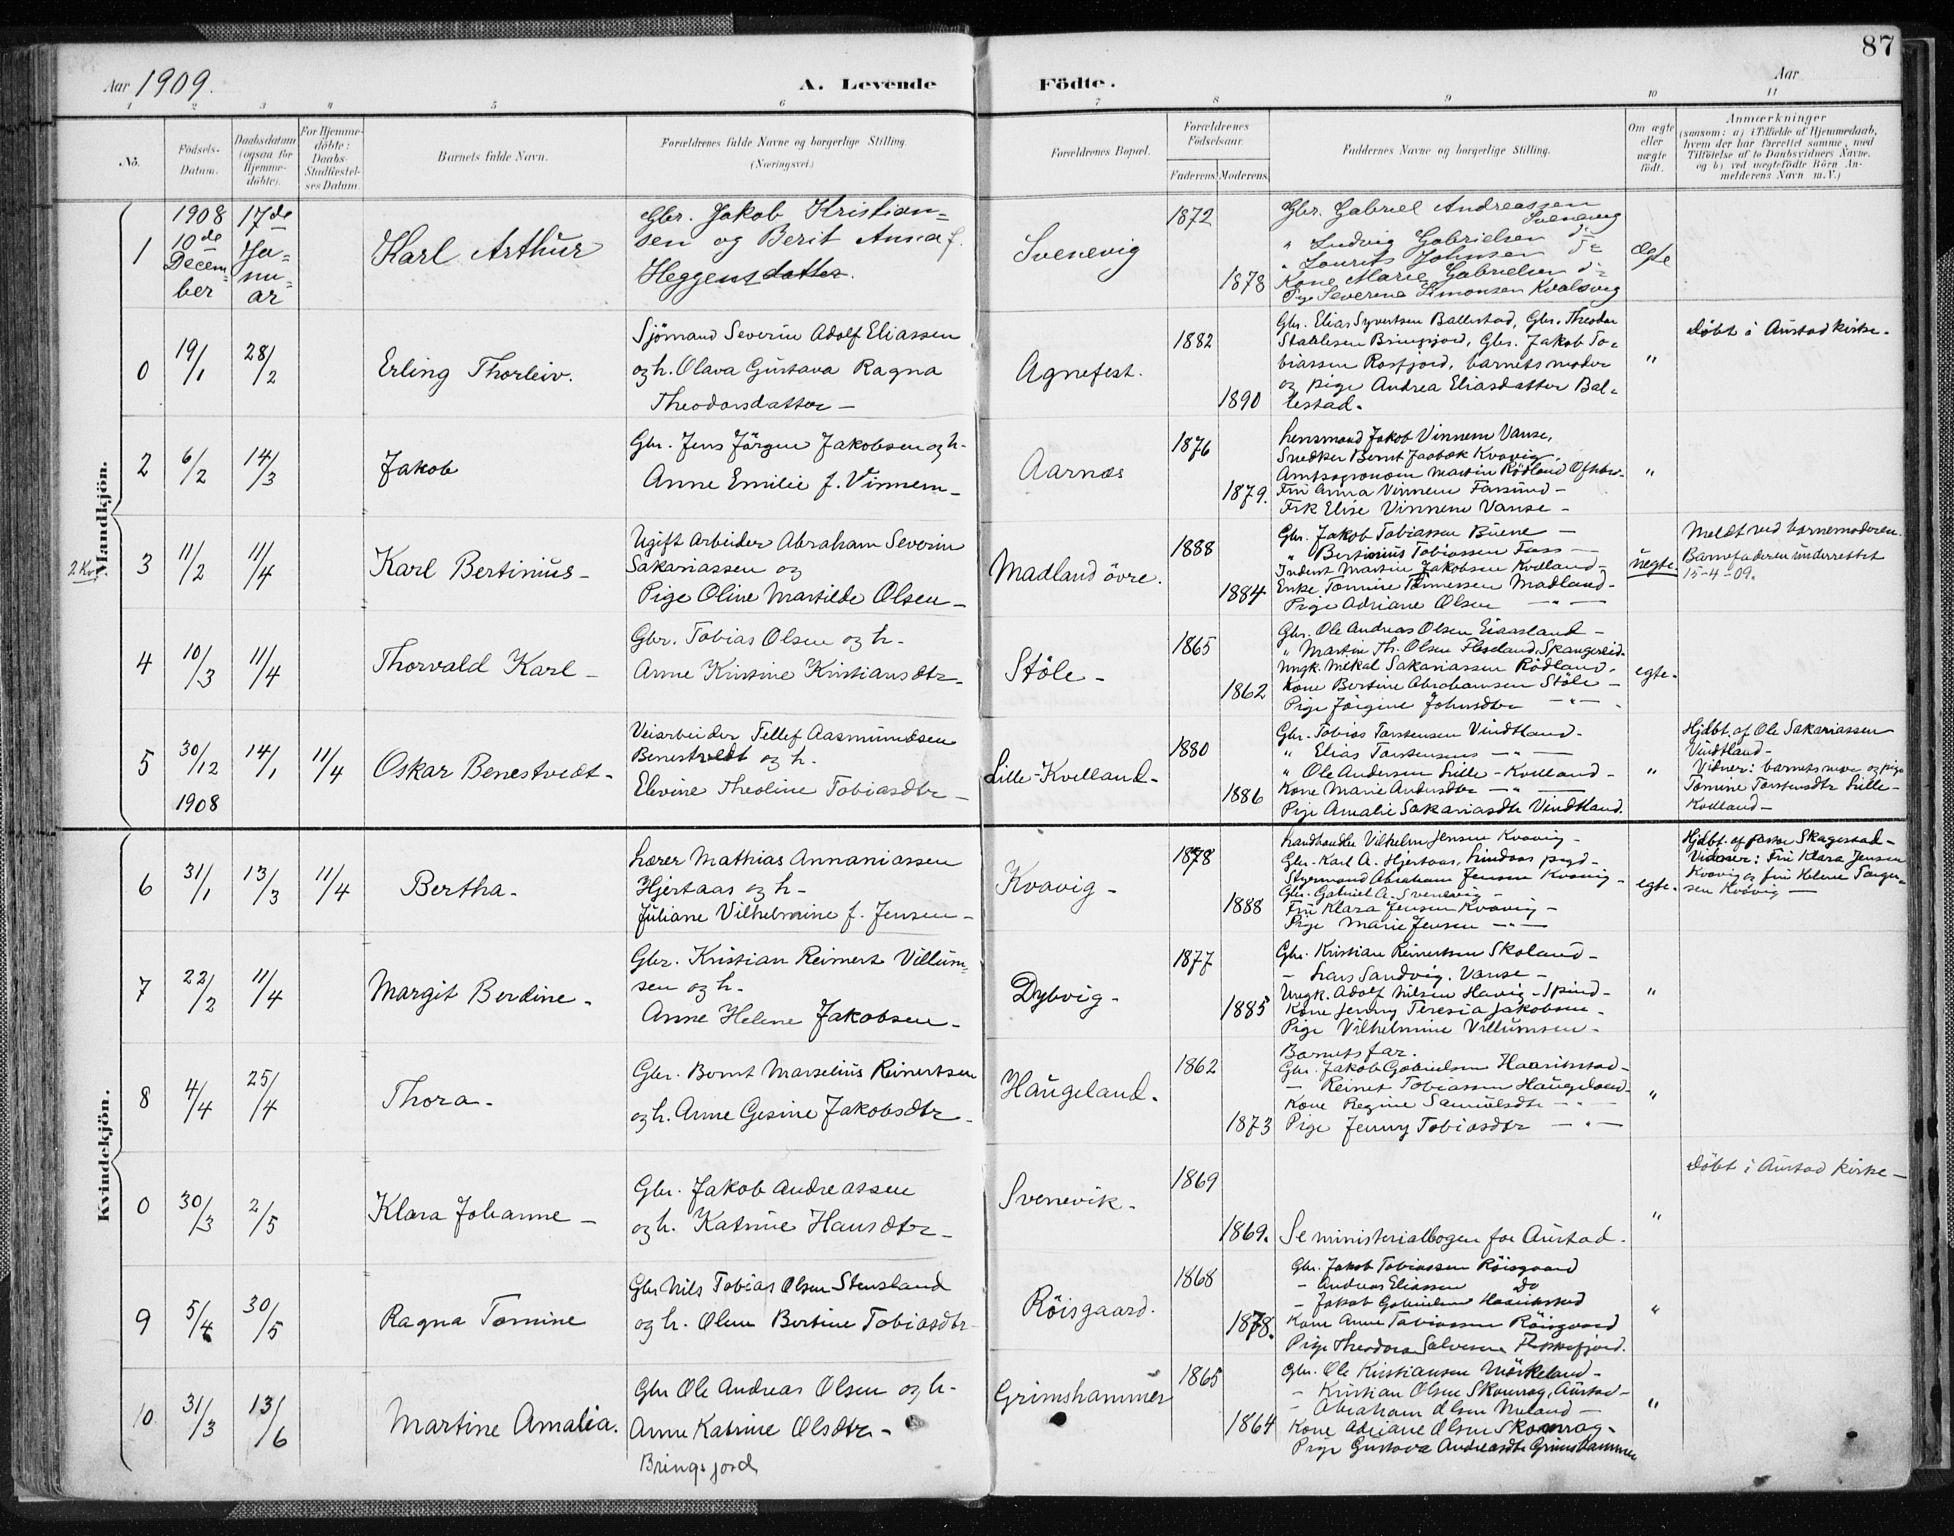 87
Aar 1909.
A. Levende Födte.
Aar
1 2 3 4 5 6 7 8 9 10 11
No.
Födsels-Datum.
Daabsdatum (ogsaa for Hjemmedöbte).
For Hjemmedöbte: Daabs-Stadfæstelses Datum.
Barnets fulde Navn.
Forældrenes fulde Navne og borgerlige Stilling.
(Næringsvei.)
Forældrenes Bopæl.
Forældrenes Födselsaar.
Faderens. Moderens.
Faddernes Navne og borgerlige Stilling.
Om ægte eller uægte födt.
Anmærkninger
(saasom: a) i Tilfælde af Hjemmedaab,
hvem der har forrettet samme, med
Tilföielse af to Daabsvidners Navne,
og b) ved uægtefödte Börn Anmelderens
Navn m.V.)
Mandkjön.
1
1908
10de December
17de Januar
Karl Arthur
Gbr. Jakob Kristian=
sen og Berit Anna f.
Heggenes
Svenevig
1872
1878
Gbr. Gabriel Andreassen Svenevig
" Ludvig Gabrielsen do
" Laurits Johnsen do
Kone Marie Gabrielsen do
Pige Severine Simonsen Kvalsvig
ægte
0
19/1
28/2
Erling Thorleiv.
Sjömand Severin Adolf Eliassen
og h. Olava Gustava Ragna
Theodorsdatter –
Agnefest.
1882
1890
Gbr. Elias Syvertsen Ballestad, Gbr. Theodor
Staalesen Bringsjord, Gbr. Jakob To-
biassen Rosfjord, barnets moder
og pige Andrea Eliasdatter Bal-
lestad.
"
Døbt i Austad kirke.
2
6/2
14/3
Jakob
Gbr. Jens Jörgen Jakobsen og h.
Anne Emilie f. Vinnem –
Aarnæs
1876
1879.
Lensmand Jakob Vinnem Vanse,
Snedker Bernt Jaabæk Kvavig,
Amtsagronom Martin Rödland
Fru Anna Vinnem Farsund –
Frk Elise Vinnem Vanse –
"
2 Kv.
3
11/2
11/4
Karl Bertinius –
Ugift Arbeider Abraham Severin
Sakariassen og
Pige Oline Martilde Olsen –
Madland övre.
1888
1884
Gbr. Jakob Tobiassen Buene –
" Bertinius Tobiassen Foss –
Inderst Martin Jakobsen Kvelland –
Enke Tomine Tönnessen Madland –
Pige Adriane Olsen – " –
uegte.
Meldt ved barnemoderen.
Barnefaderen underrettet
15-4-09.
4
10/3
11/4
Thorvald Karl –
Gbr. Tobias Olsen og h.
Anne Kristine Kristiansdtr –
Stöle –
1865
1862
Gbr. Ole Andreas Olsen Eiaasland –
" Martin Th. Olsen Skangereid.
Ungk. Mekal Sakariassen Rödland.
Kone Bertine Abrahamsen Stöle –
Pige Jörgine Johnsdtr – " –
egte.
5
30/12
1908
14/1
11/4
Oskar Benestvedt –
Veiarbeider Tellef Aasmundsen
Benestvedt og h.
Elevine Theoline Tobiasdtr –
Lille-Kvelland –
1880
1886
Gbr. Tobias Torstensen Vindtland –
" Elias Torstensen – " –
" Ole Andersen Lille-Kvelland –
Kone Marie Andersdtr – " –
Pige Amalie Sakariasdtr Vindtland.
"
Hjdbt. af Ole Sakariassen
Vindtland –
Vidner: barnets mor og pige
Tomine Torstensdtr Lille-
Kvelland –
Kvindekjön.
6
31/1
13/3
11/4
Bertha –
Lærer Mathias Annaniassen
Hjertaas og h.
Juliane Vilhelmine f. Jensen –
Kvavig –
1878
1888
Landhandler Vilhelm Jensen Kvavig –
Gbr. Karl A. Hjertaas, Lindaas pgd –
Styrmand Abraham Jensen Kvavig –
Gbr. Gabriel A. Svenevig –
Fru Klara Jensen Kvavig –
Pige Marie Jensen – " –
egte.
Hjdbt. af Skagestad –
Vidner: Fru Klara Jensen
Kvavig og fru Helene Torger-
sen Kvavig –
7
22/2
11/4
Margit Berdine –
Gbr. Kristian Reinert Villum-
sen og h.
Anne Helene Jakobsen –
Dybvig –
1877
1885
Gbr. Kristian Reinertsen Skoland –
– Lars Sandvig, Vanse –
Ungk. Adolf Nilsen Havig – Spind –
Kone Jenny Teresia Jakobsen –
Pige Vilhelmine Villumsen –
"
8
4/4
25/4
Thora –
Gbr. Bernt Marselius Reinertsen
og h. Anne Gesine Jakobsdtr –
Haugeland.
1862
1873
Barnets far.
Gbr. Jakob Gabrielsen Haarikstad –
– Reinert Tobiassen Haugeland –
Kone Regine Samuelsdtr – " –
Pige Jenny Tobiasdtr – " –
"
0
30/3
2/5
Klara Johanne –
Gbr. Jakob Andreassen
og h. Katrine Hansdtr –
Svenevik.
1869
1869.
Se ministerialbogen for Austad.
"
Döbt i Austad kirke –
9
5/4
30/5
Ragna Tomine
Gbr Nils Tobias Olsen Stensland
og h. Oline Bertine Tobiasdtr
Röisgaard.
1868
1878.
Gbr. Jakob Tobiassen Röisgaard
– Andreas Eliassen Do
– Jakob Gabrielsen Haarikstad
Kone Anne Tobiassen Röisgaard
Pige Theodora Salvesen Flekkefjord.
"
10.
31/3
13/6
Martine Amalia.
Gbr Ole Andreas Olsen og h.
Anne Katrine Olsdtr –
Bringsjord
Grimshammer
1865
1864
Gbr. Ole Kristiansen Mörkeland –
– Kristian Olsen Skomrag, Austad –
– Abraham Olsen –
Kone Adriane Olsen Skomrag –
Pige Gustava Andreasdtr Grimshammer
"